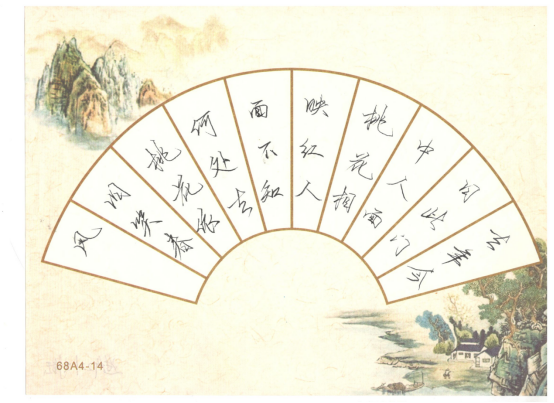 去年今
日此门
中人面
桃花相
映红人
面不知
何处去
桃花依
旧笑春
风
68A4-14